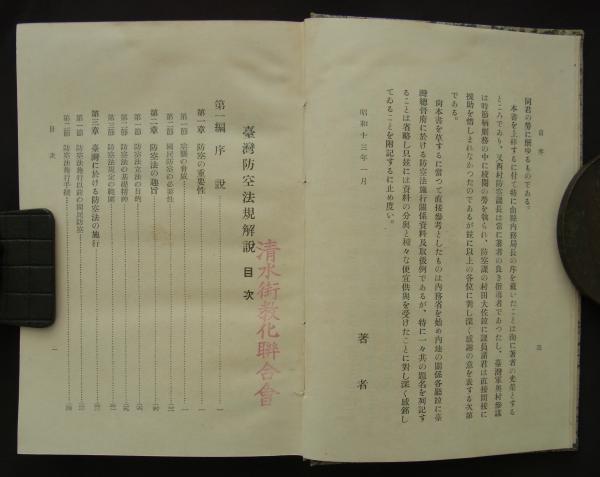 自序
三
同君の勞に酬ゆるものである。
本書を上梓するに付て特に山縣內務局長の序を戴いたことは洵に著者の光榮とする
ところであり、又西村防空課長は常に著者の良き指導者であつたし、臺灣軍奧村參謀
は時節柄劇務の中に校閱の勞を執られ、防空課の村田大佐竝に課員諸君は直接間接に
援助を惜しまれなかつたのであるが玆に以上の各位に對し深く感謝の意を表する次第
である。
尙本書を草するに當つて直接參考としたものは內務省を始め內地の關係各廳竝に臺
灣總督府に於ける防空法施行關係資料及取扱例であるが、特に一々其の題名を列記す
ることは省略し只玆には資料の分與と種々な便宜供與を受けたことに對し深く感銘し
てゐることを附記するに止め度い。
昭和十三年一月
著者
臺灣防空法規解說 目次
清水街敎化聯合會
第一編 序說
第一章 防空の重要性
第一節 空襲の脅威
第二節 國民防空の必要性
第二章 防空法の趣旨
第一節 防空法立法の目的
第二節 防空法の基礎精神
第三節 防空法規定の範圍
第三章 臺灣に於ける防空法の施行
第一節 防空法施行以前の國民防空
第二節 防空法施行手續
目次
一